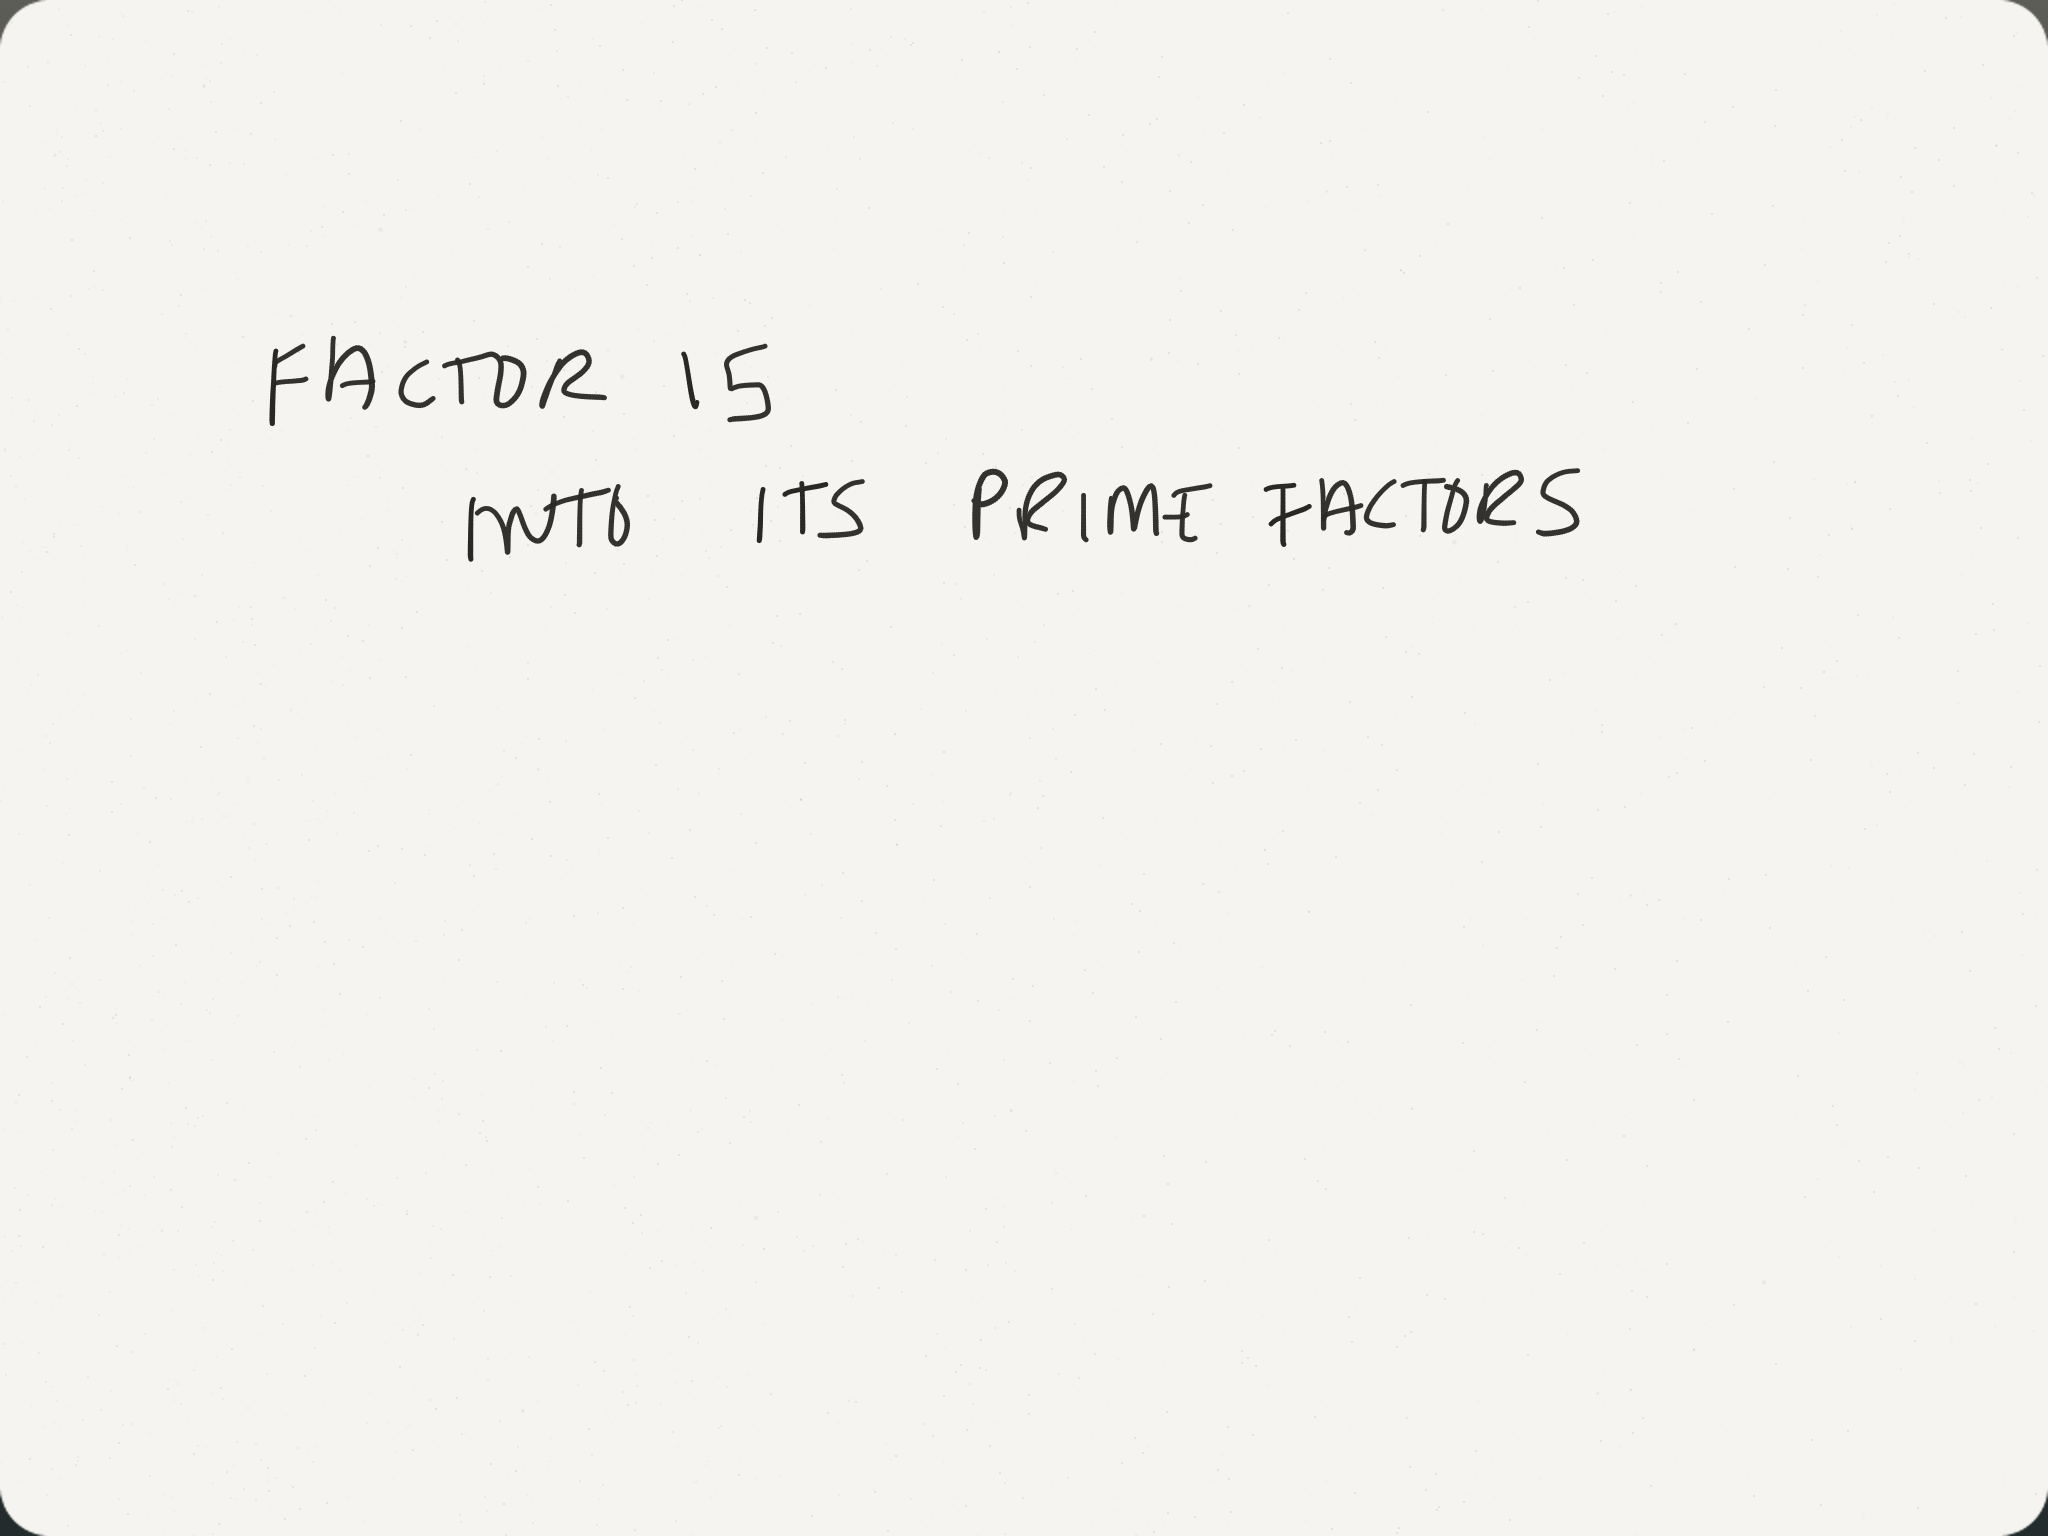 FACTOR 15
INTO ITS PRIME FACTORS